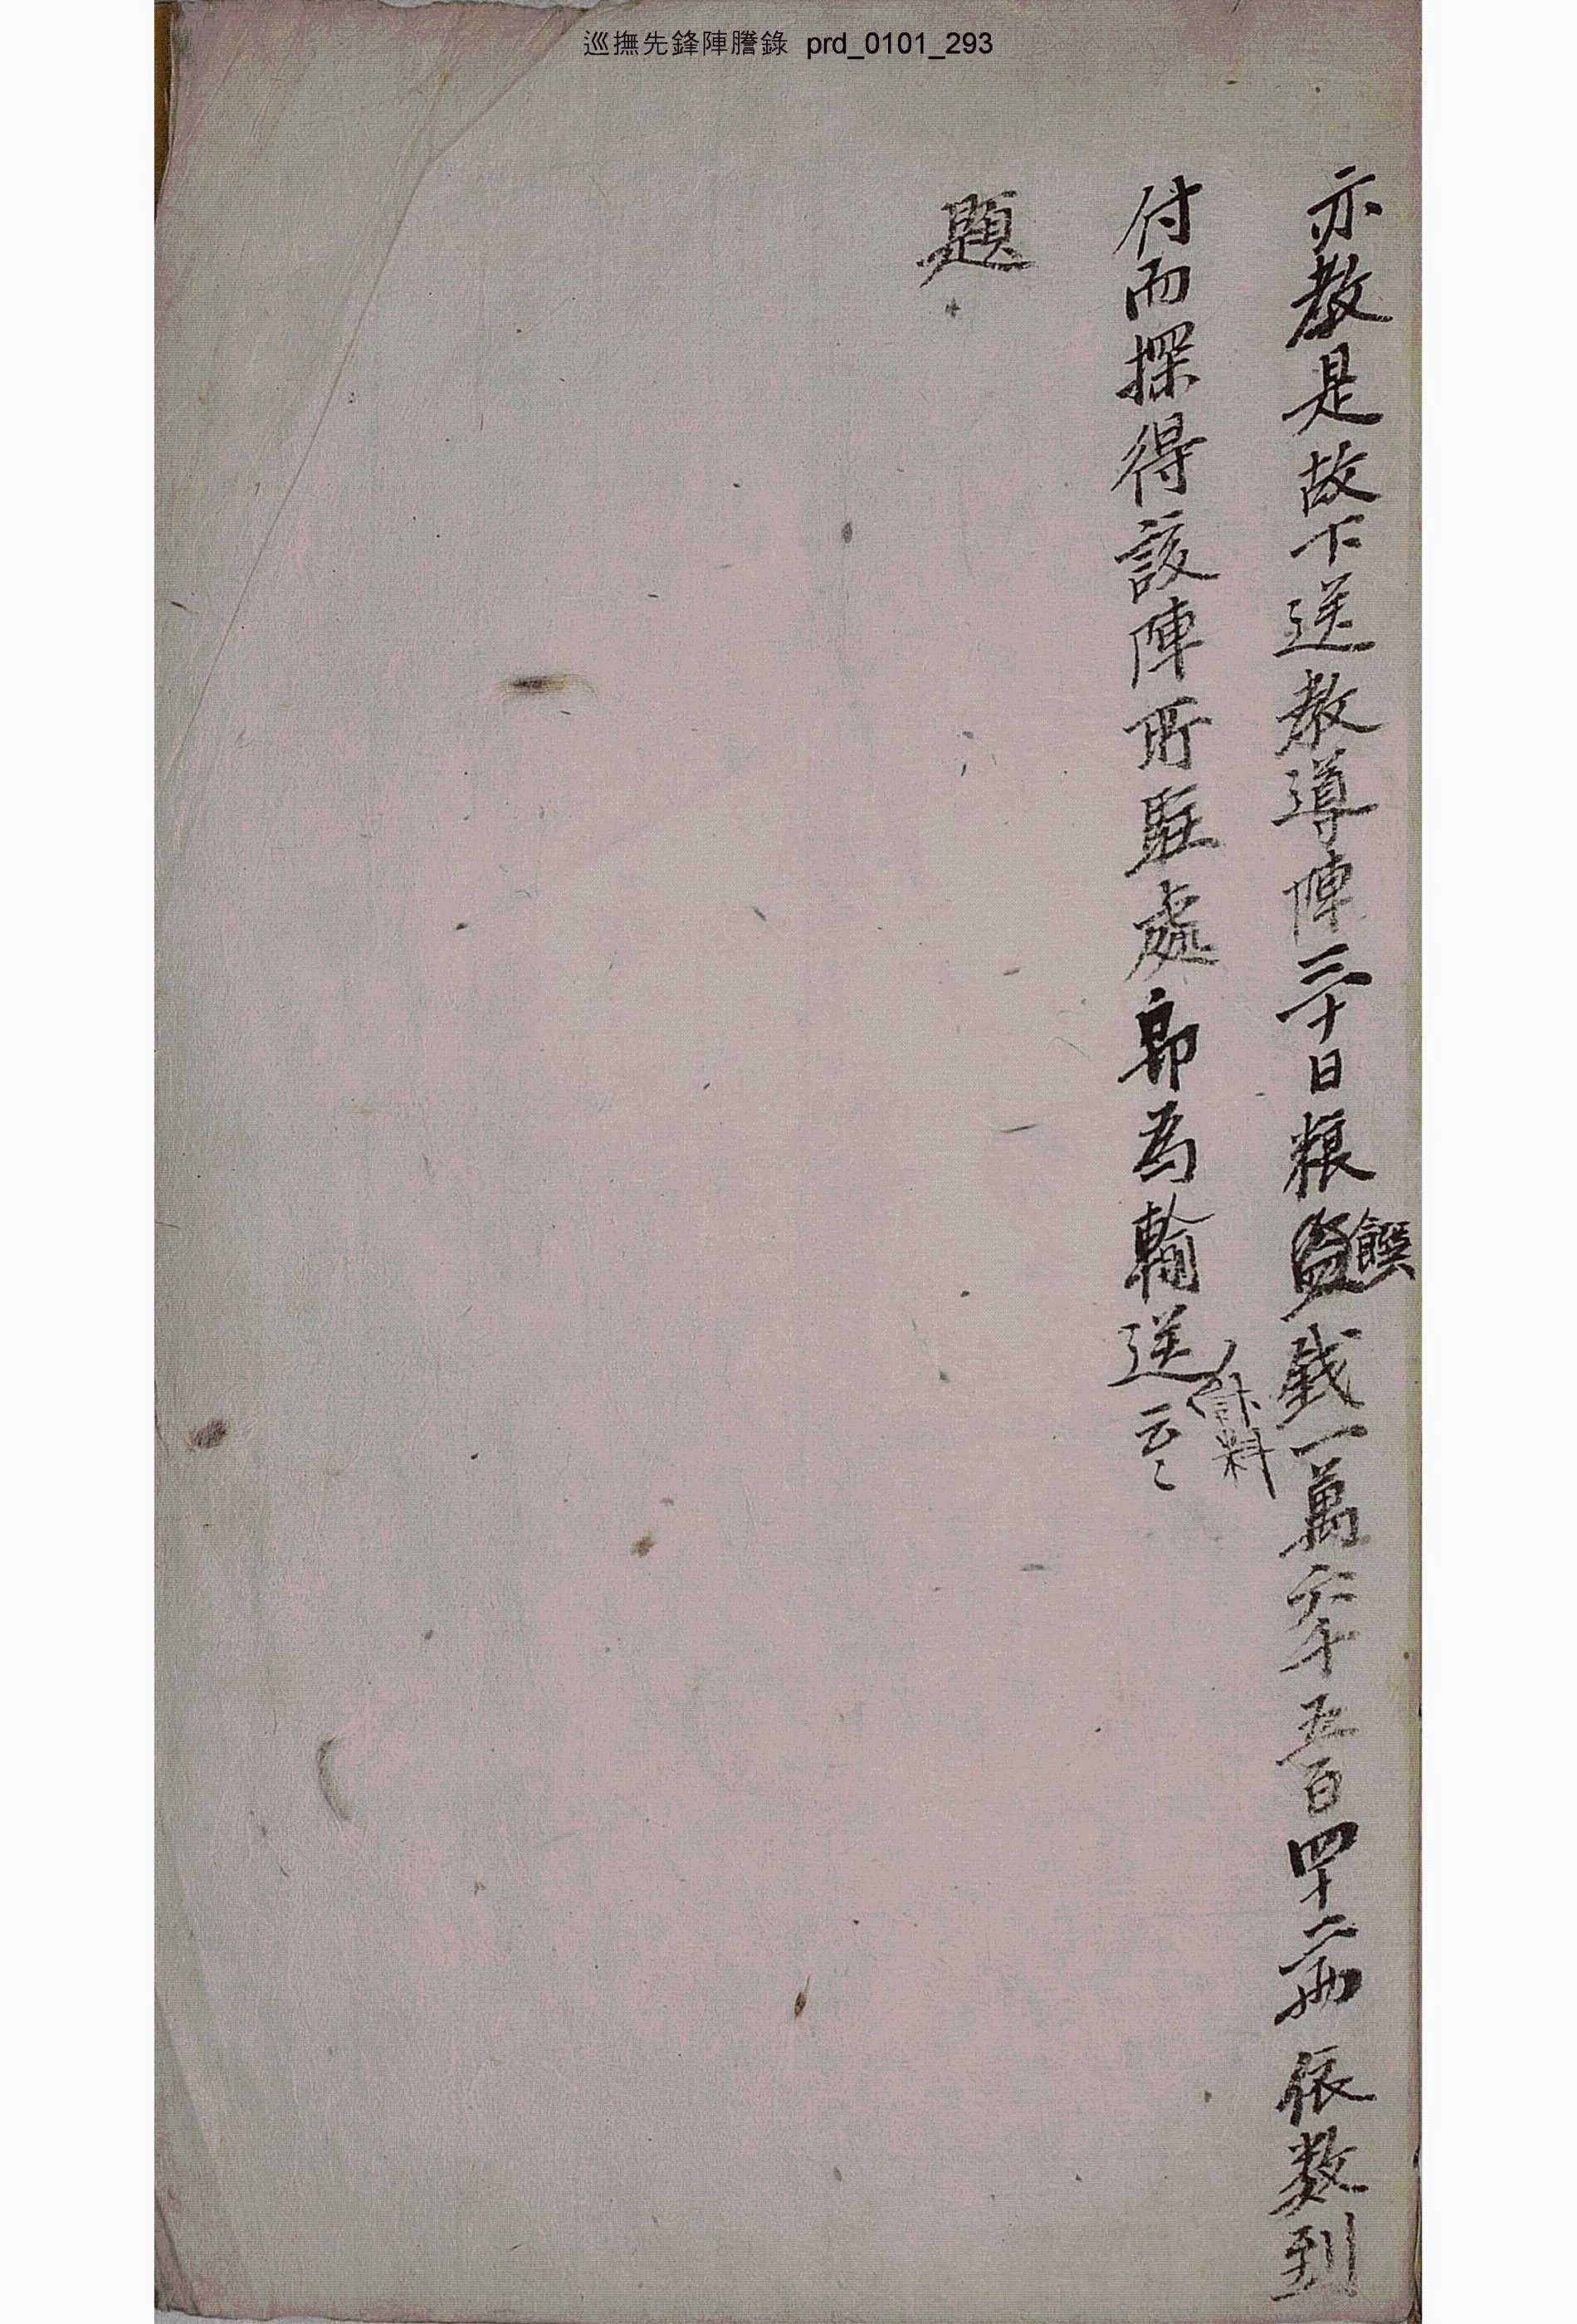 巡撫先鋒陣謄錄 prd_0101_293
亦敎是故下送敎導陣三十日粮饌戔一萬六千五百四十二兩依数到
付而探得該陣所駐處郎爲輸送計料云〻
題